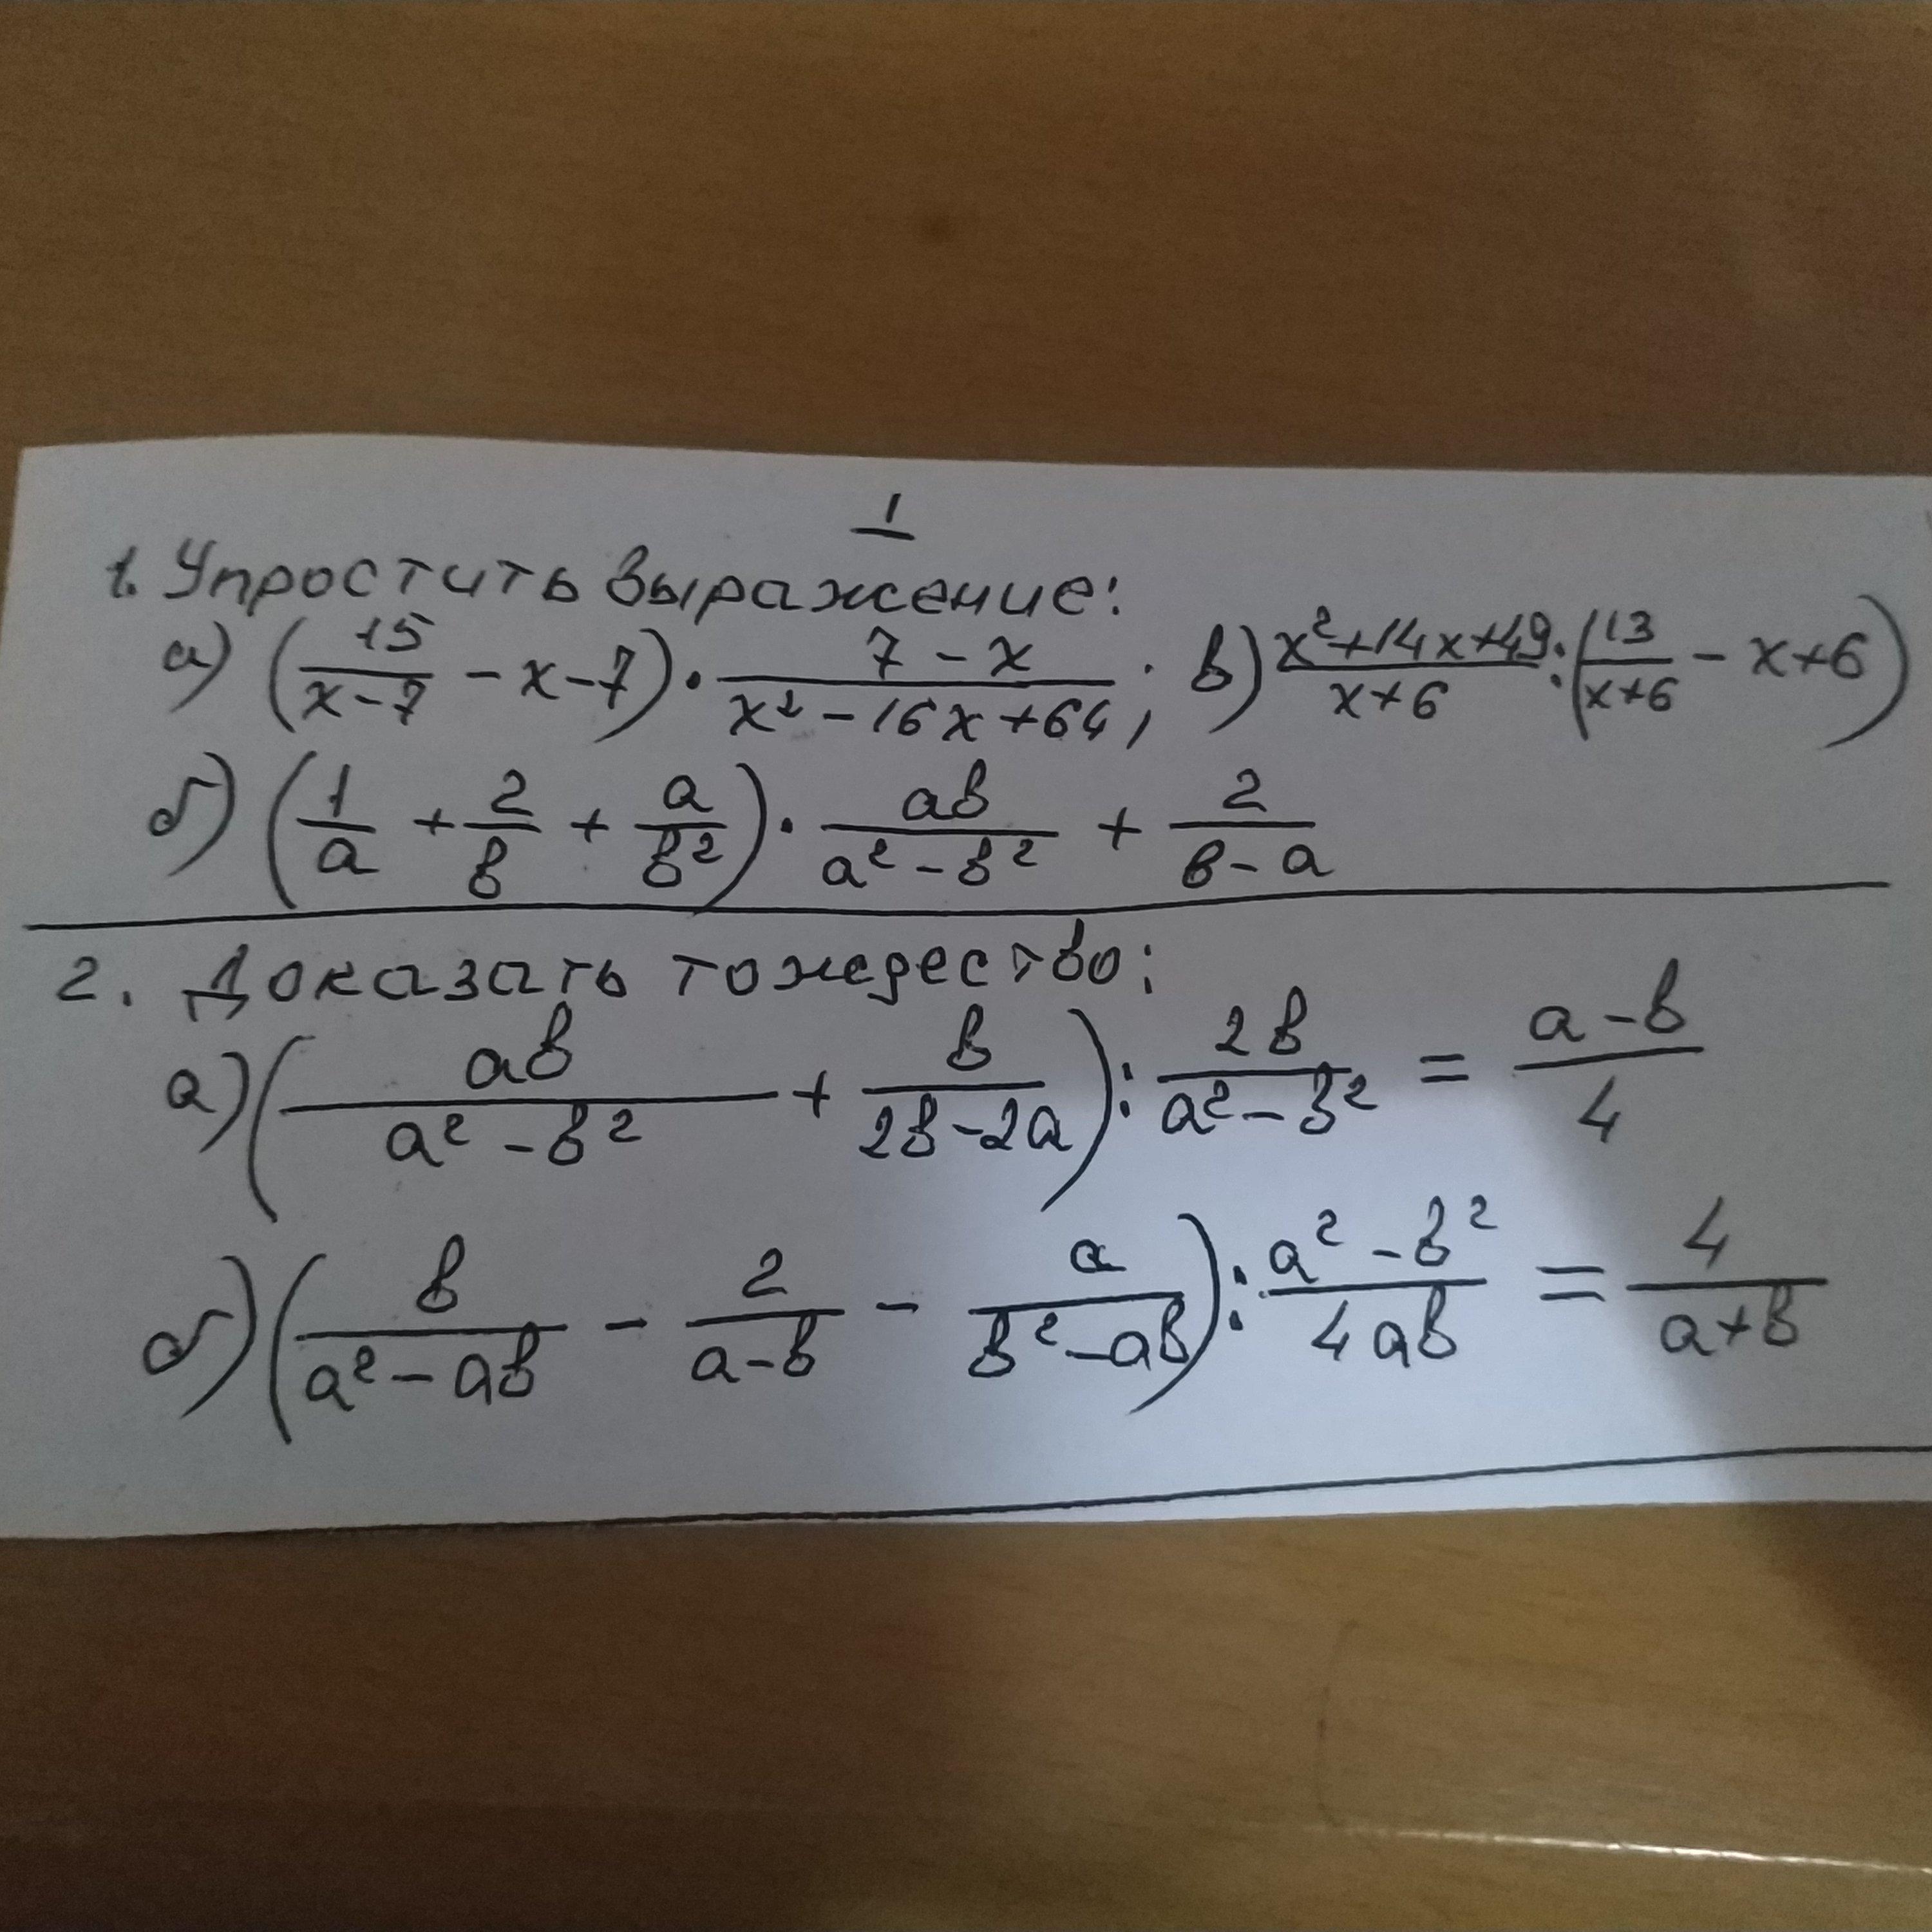 1
1. Упростить выражение:
а) (15/(x-7) - x - 7) · (7 - x)/(x² - 16x + 64); в) (x² + 14x + 49)/(x+6) : (13/(x+6) - x + 6)
б) (1/a + 2/b + a/b²) · ab/(a² - b²) + 2/(b - a)
2. Доказать тождество:
а) (ab/(a² - b²) + b/(2b - 2a)) : 2b/(a² - b²) = (a - b)/4
б) (b/(a² - ab) - 2/(a - b) - a/(b² - ab)) : (a² - b²)/(4ab) = 4/(a + b)